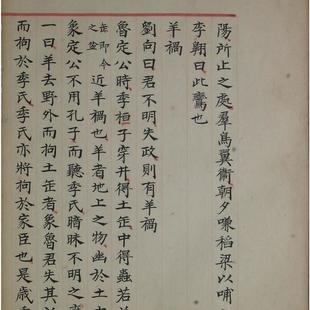 陽所止之處羣鳥翼衞朝夕嗛稻梁以哺
李朝曰此鸞也
羊禍
劉向曰君不明失政則有羊禍
魯定公時季桓子穿井得土缶中得蟲若羊
缶即今之盆
近羊禍也羊者地上之物幽於土中
象定公不用孔子而聽季氏暗昧不明之
一曰羊去野外而拘土缶者象魯君失其
而拘於季氏季氏亦將拘於家臣也是歲季